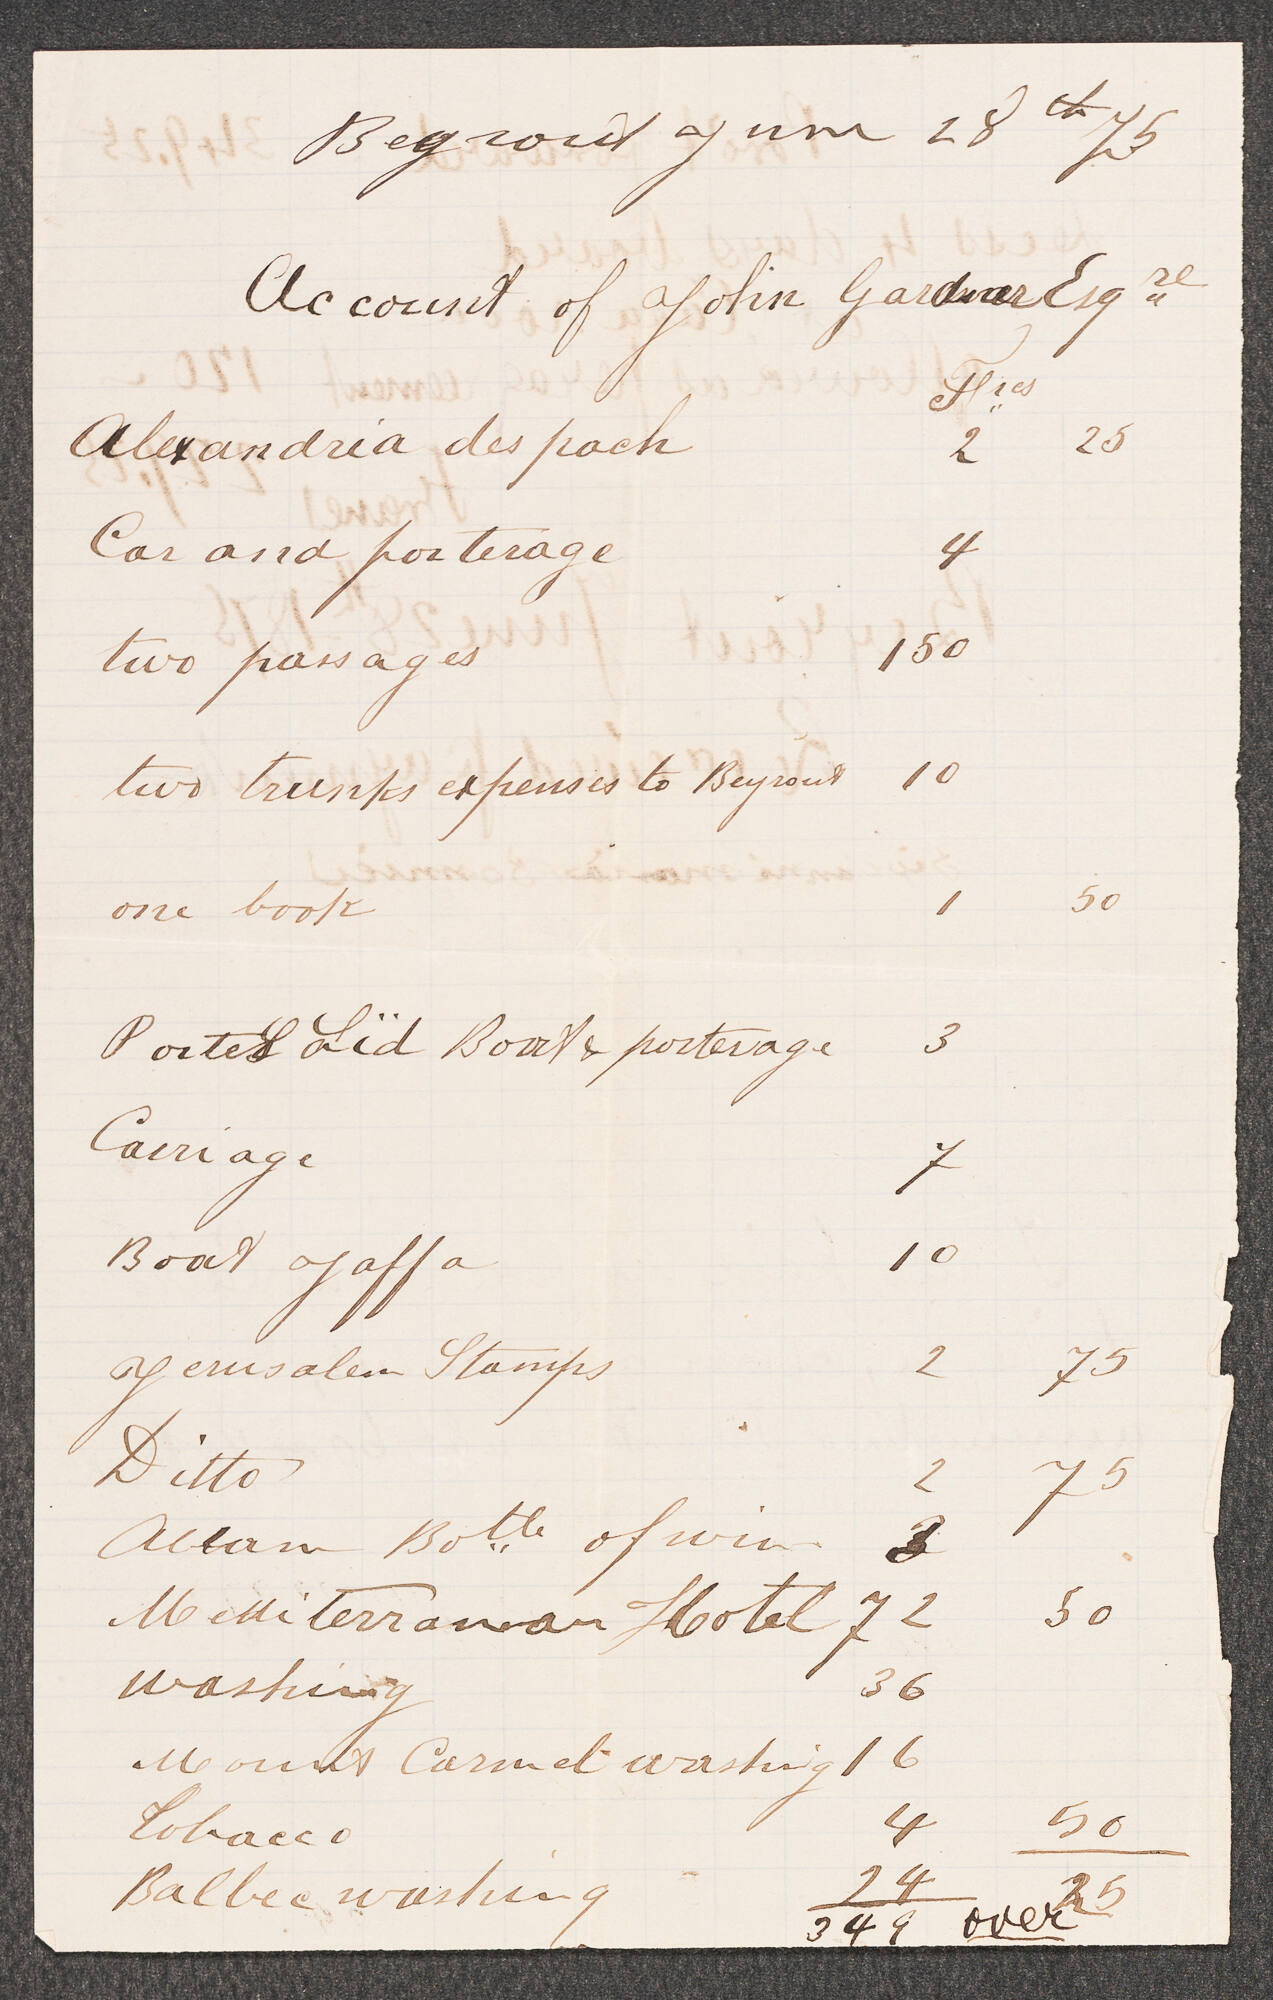 Beyrout June 28th 75
Account of John Gardner Esqre
Frcs
Alexandria despach 2 25
Car and porterage 4
two passages 150
two trunks expenses to Beyrout 10
one book 1 50
Porte Saïd Boat & porterage 3
Carriage 7
Boat Jaffa 10
Jerusalem Stamps 2 75
Ditto 2 75
Bottle of wine 3
Mediterranean Hotel 72 50
washing 36
Mount Carmel washing 16
Tobacco 4 50
Balbec washing 24
349 over 25